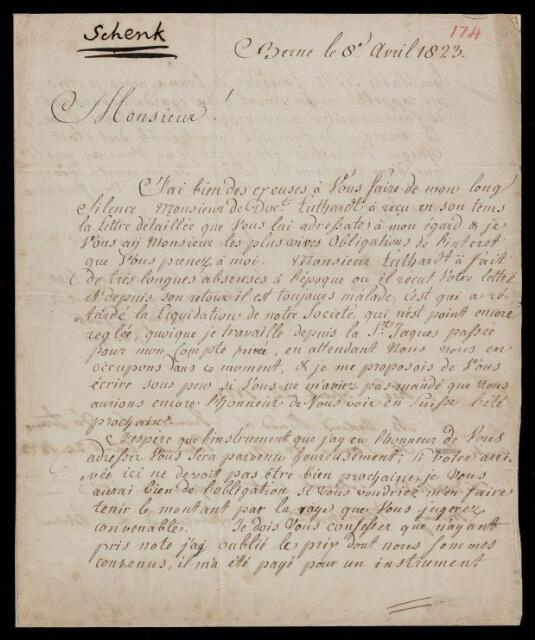 Schenk
174
Berne le 8t Avril 1823.
Monsieur!
J'ai bien des excuses à Vous faire de mon long
Silence. Monsieur de Doct Luthardt à reçu en son tems
la Lettre détaillée que Vous lui adressates à mon égard & je
Vous aij Monsieur les plus vives Obligations de l'interet
que Vous prenez à moi. Monsieur Luthardt à fait
de très longues absenses à l'époque ou il reçut Votre lettre
et depuis son retour il est toujours malade, c'est qui a re-
tardé la Liquidation de notre Societé, qui n'est point encore
reglée, quoique je travaille depuis la St Jaques passée
pour mon Compte privée, en attendant Nous nous en
occupons dans ce moment, & je me proposois de Vous
écrire sous peu si Vous ne m'aviez pas mandé que Nous
aurions encore l'honneur de Vous voir en Suisse l'été
prochain.
J'espère que l'instrument que j'ay eu l'honneur de Vous
adresser Vous sera parvenu heureusement; si Votre arri-
vée ici ne devoit pas être bien prochaine, je Vous
aurai bien de l'obligation si Vous voudriez m'en faire
tenir le montant par la voye que Vous jugerez
convenable. Je dois Vous confesser que n'ayant
pris note j'ay oublié le prix dont nous sommes
convenus, il m'a été payé pour un instrument